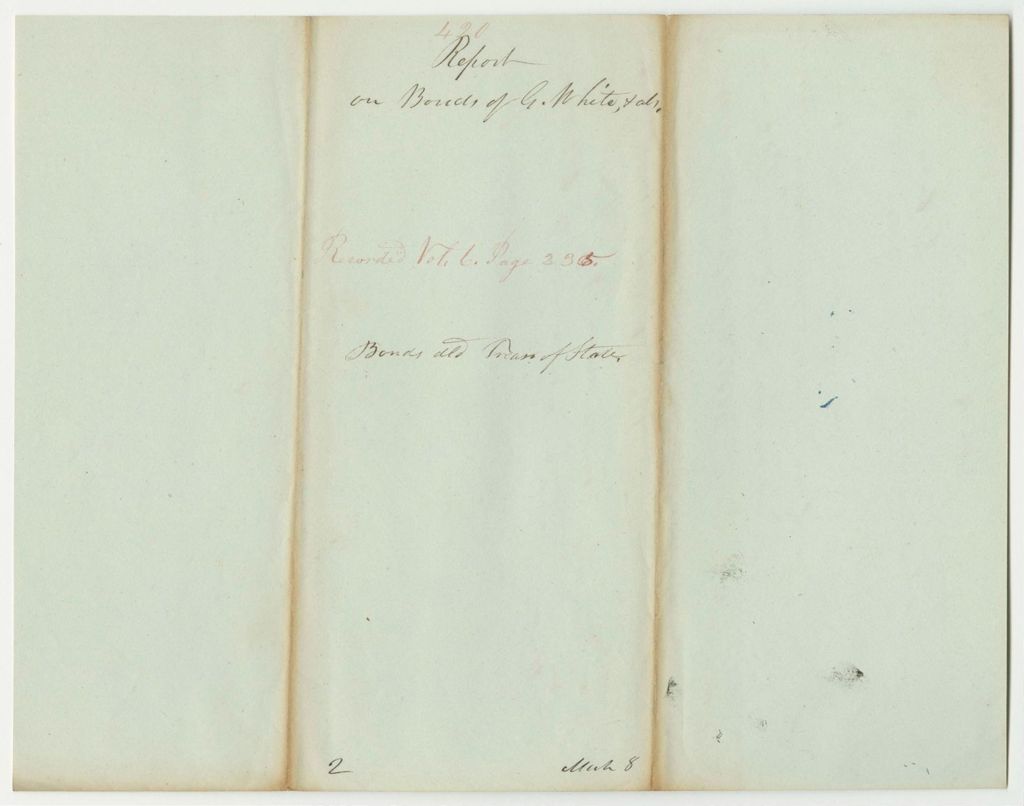 420
Report
on Bonds of G. White, & als.
Recorded Vol. 6. Page 335.
Bonds dld Treas of State.
2 Mch 8